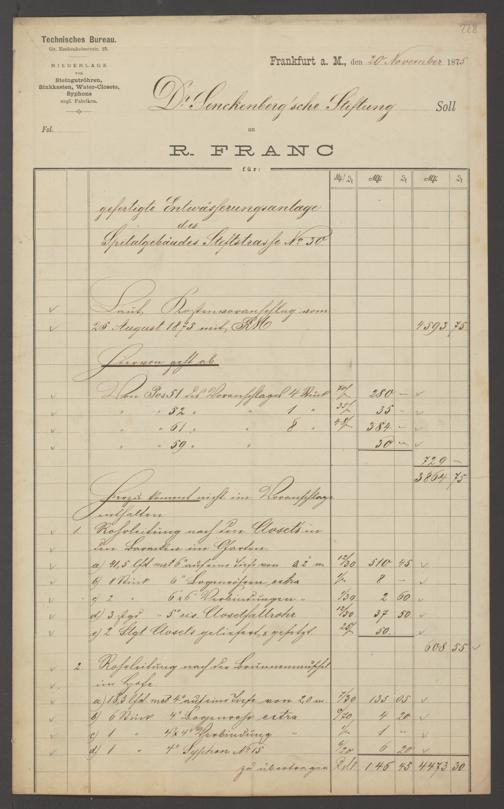 228
Technisches Bureau.
Gr. Eschenheimerstr. 29.
NIEDERLAGE
von
Steingutröhren,
Sinkkasten, Water-Closets,
Syphons
engl. Fabriken.
Frankfurt a. M., den 20. November 1875
Dr. Senckenberg'sche Stiftung Soll
Fol. an
R. FRANC
für:
gefertigte Entwässerungsanlage
des
Spitalgebäudes Stiftstrasse No. 30.
Laut Kostenvoranschlag vom
25 August 1875 mit RM 4593 75
Hiervon geht ab
Von Pos 51 des Voranschlages 4 Stück 70/ 280 —
" " 52 " " 1 " 35/ 35 —
" " 61 " " 8 " 48/ 384 —
" " 59 " " 30 —
729 —
3864 75
Hierzu kommt nicht im Voranschlage
enthalten
1 Rohrleitung nach den Closets in
den Baracken im Garten
a) 41,5 lfd mt 6" auf eine Tiefe von 2 m 12/30 510 45
b) 1 Stück 6" Bogenröhren extra 8 —
c) 2 " 6x6" Verbindungen " 1/30 2 60
d) 3 " 5" eis. Closetfallrohr 12/50 37 50
e) 2 Closets geliefert & gesetzt 25/ 50
608 55
2 Rohrleitung nach der Brunnenmuschel
im Hofe
a) 18,5 lfd mt 4" auf eine Tiefe von 2,0 m 7/30 135 05
b) 6 Stück 4" Bogenrohr extra 0/70 4 20
c) 1 " 4/4" Verbindung " 1/ 1 —
d) 1 " 4" Syphon No 15 6/20 6 20
zu übertragen 145 45 4473 30